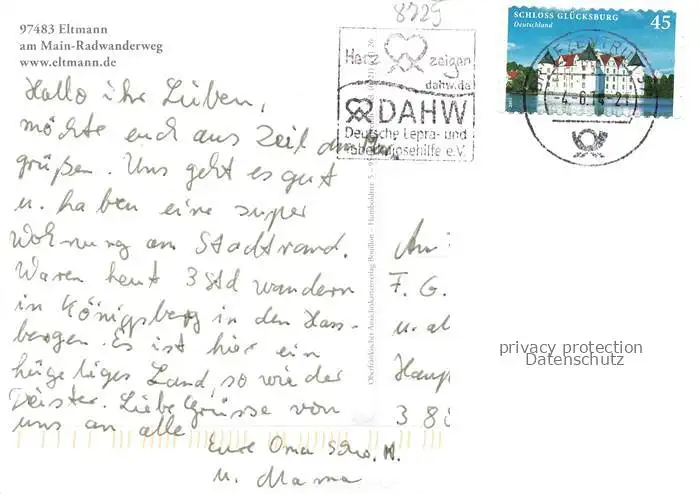 8729
97483 Eltmann
am Main-Radwanderweg
www.eltmann.de
Hallo ihr Lieben,
möchte euch aus Zeil
grüßen. Uns geht es gut
u. haben eine super
Wohnung am Stadtrand.
Waren heut 3 Std wandern
in Königsberg in den Hass-
bergen. Es ist hier ein
hügeliges Land, so wie der
Deister. Liebe Grüsse von
uns an alle
Eure Oma
u. Mama
Herz zeigen
dahw.de
DAHW
Deutsche Lepra- und
Tuberkulosehilfe e.V.
SCHLOSS GLÜCKSBURG
Deutschland
45
An
F. G.
u. al
Haup
38
privacy protection
Datenschutz